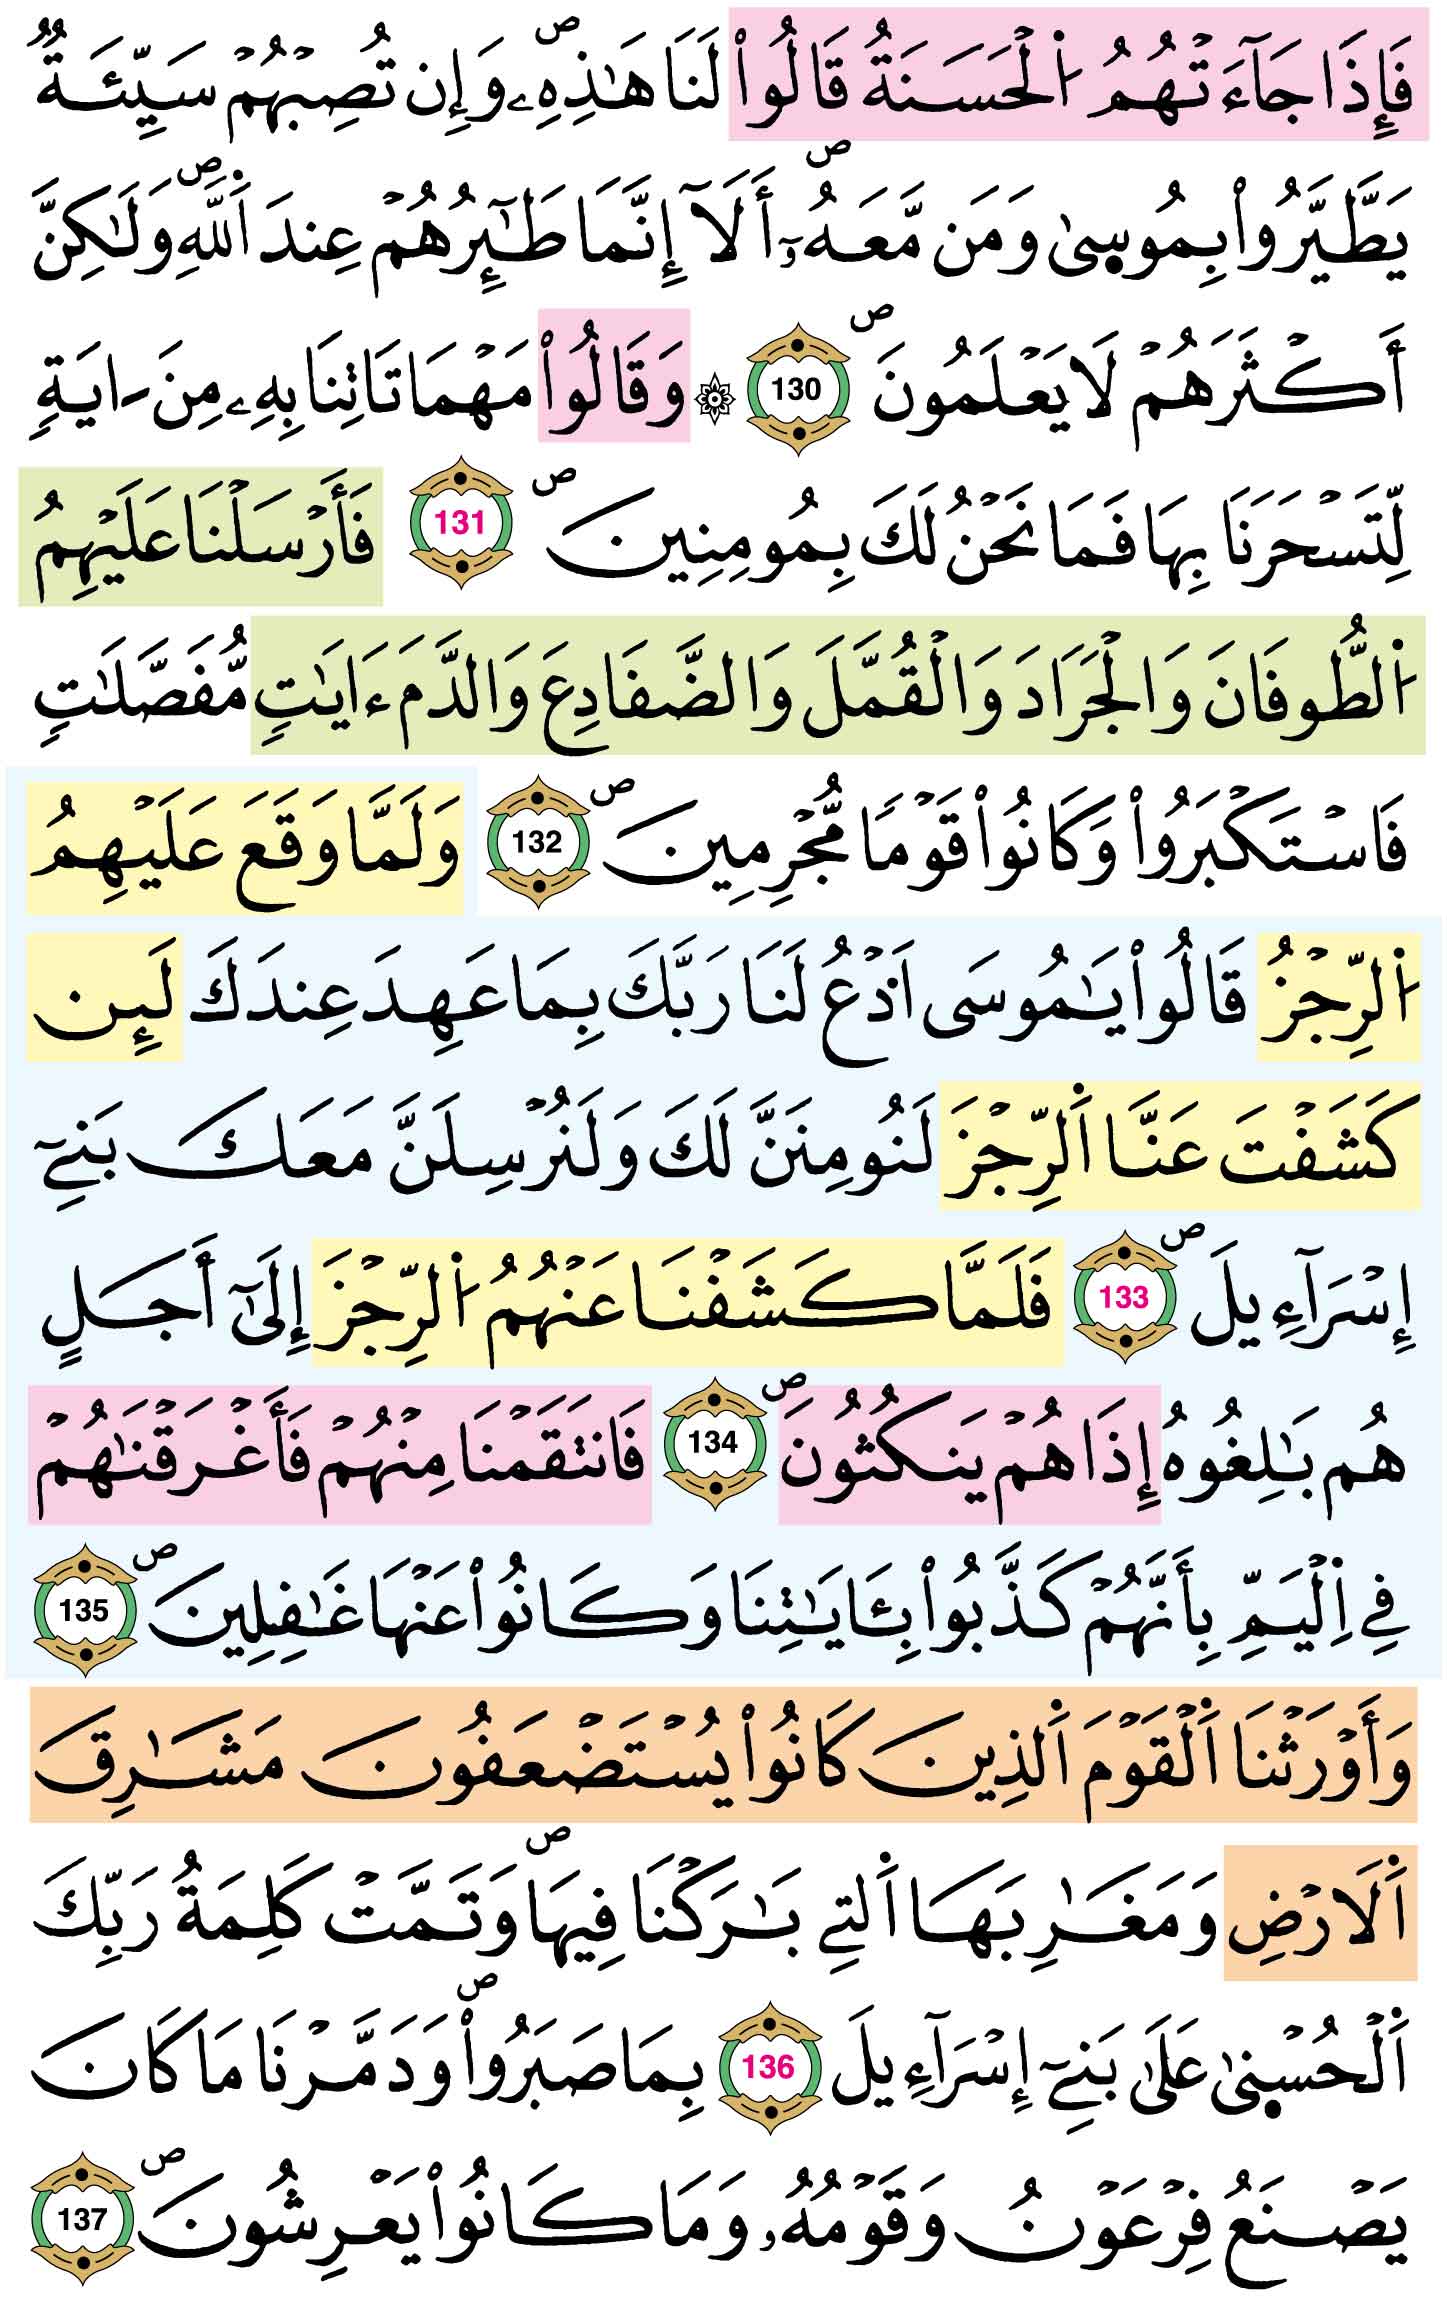 فَإِذَا جَآءَتْهُمُ اُ۬لْحَسَنَةُ قَالُواْ لَنَا هَٰذِهِۦۖ وَإِن تُصِبْهُمْ سَيِّئَةٞ
يَطَّيَّرُواْ بِمُوس۪ىٰ وَمَن مَّعَهُۥٓۖ أَلَآ إِنَّمَا طَٰٓئِرُهُمْ عِندَ اَ۬للَّهِۖ وَلَٰكِنَّ
أَكْثَرَهُمْ لَا يَعْلَمُونَۖ 130 ۞ وَقَالُواْ مَهْمَا تَاتِنَا بِهِۦ مِنَ اٰيَةٖ
لِّتَسْحَرَنَا بِهَا فَمَا نَحْنُ لَكَ بِمُومِنِينَۖ 131 فَأَرْسَلْنَا عَلَيْهِمُ
اُ۬لطُّوفَانَ وَالْجَرَادَ وَالْقُمَّلَ وَالضَّفَادِعَ وَالدَّمَ ءَايَٰتٖ مُّفَصَّلَٰتٖ
فَاسْتَكْبَرُواْ وَكَانُواْ قَوْماٗ مُّجْرِمِينَۖ 132 وَلَمَّا وَقَعَ عَلَيْهِمُ
اُ۬لرِّجْزُ قَالُواْ يَٰمُوسَى اَ۟دْعُ لَنَا رَبَّكَ بِمَا عَهِدَ عِندَكَ لَئِن
كَشَفْتَ عَنَّا اَ۬لرِّجْزَ لَنُومِنَنَّ لَكَ وَلَنُرْسِلَنَّ مَعَكَ بَنِےٓ
إِسْرَآءِيلَۖ 133 فَلَمَّا كَشَفْنَا عَنْهُمُ اُ۬لرِّجْزَ إِلَىٰٓ أَجَلٍ
هُم بَٰلِغُوهُ إِذَا هُمْ يَنكُثُونَۖ 134 فَانتَقَمْنَا مِنْهُمْ فَأَغْرَقْنَٰهُمْ
فِے اِ۬لْيَمِّ بِأَنَّهُمْ كَذَّبُواْ بِـَٔايَٰتِنَا وَكَانُواْ عَنْهَا غَٰفِلِينَۖ 135
وَأَوْرَثْنَا اَ۬لْقَوْمَ اَ۬لذِينَ كَانُواْ يُسْتَضْعَفُونَ مَشَٰرِقَ
اَ۬لَارْضِ وَمَغَٰرِبَهَا اَ۬لتِے بَٰرَكْنَا فِيهَاۖ وَتَمَّتْ كَلِمَةُ رَبِّكَ
اَ۬لْحُسْن۪ىٰ عَلَىٰ بَنِےٓ إِسْرَآءِيلَ 136 بِمَا صَبَرُواْۖ وَدَمَّرْنَا مَا كَانَ
يَصْنَعُ فِرْعَوْنُ وَقَوْمُهُۥ وَمَا كَانُواْ يَعْرِشُونَۖ 137